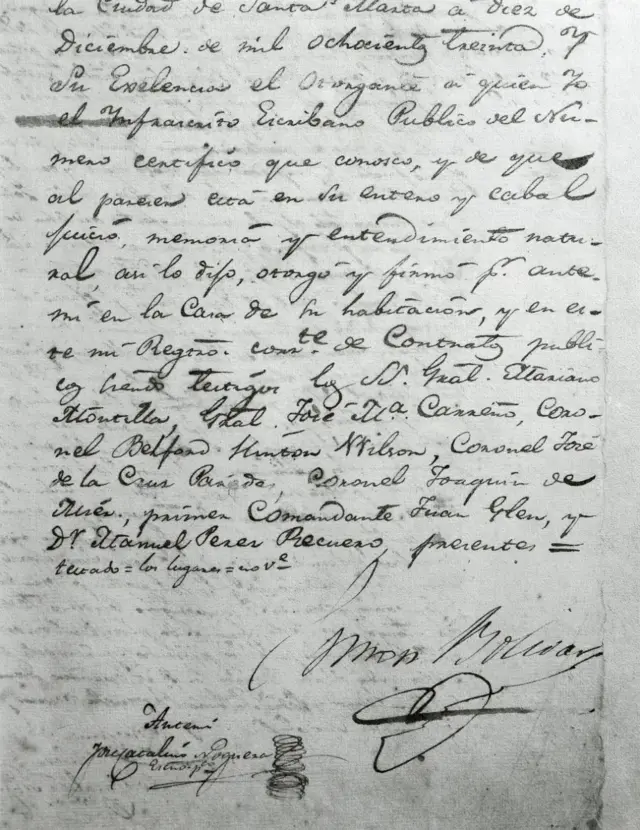 la Ciudad de Santa Marta á diez de
Diciembre de mil ochocientos treinta, y
Su Exelencia el Otorgante á quien Yo
el Infrascrito Escribano Publico del Nu-
mero certifico que conosco, y de que
al parecer está en su entero y cabal
juicio, memoria y entendimiento natu-
ral, asi lo dijo, otorgó y firmó pr. ante-
mi en la Casa de su habitación, y en es-
te mi Registro corrte. de Contratos publi-
cos siendo testigos los SS. Gral. Mariano
Montilla, Gral. José Ma. Carreño, Coro-
nel Belford Hinton Wilson, Coronel José
de la Cruz Paredes, Coronel Joaquín de
Mier, primer Comandante Juan Glen, y
Dr. Manuel Perez Recuero, presentes =
testado = los lugares = no ve.
Simon Bolivar
Antemi
José Catalino Noguera
Escno. pco.